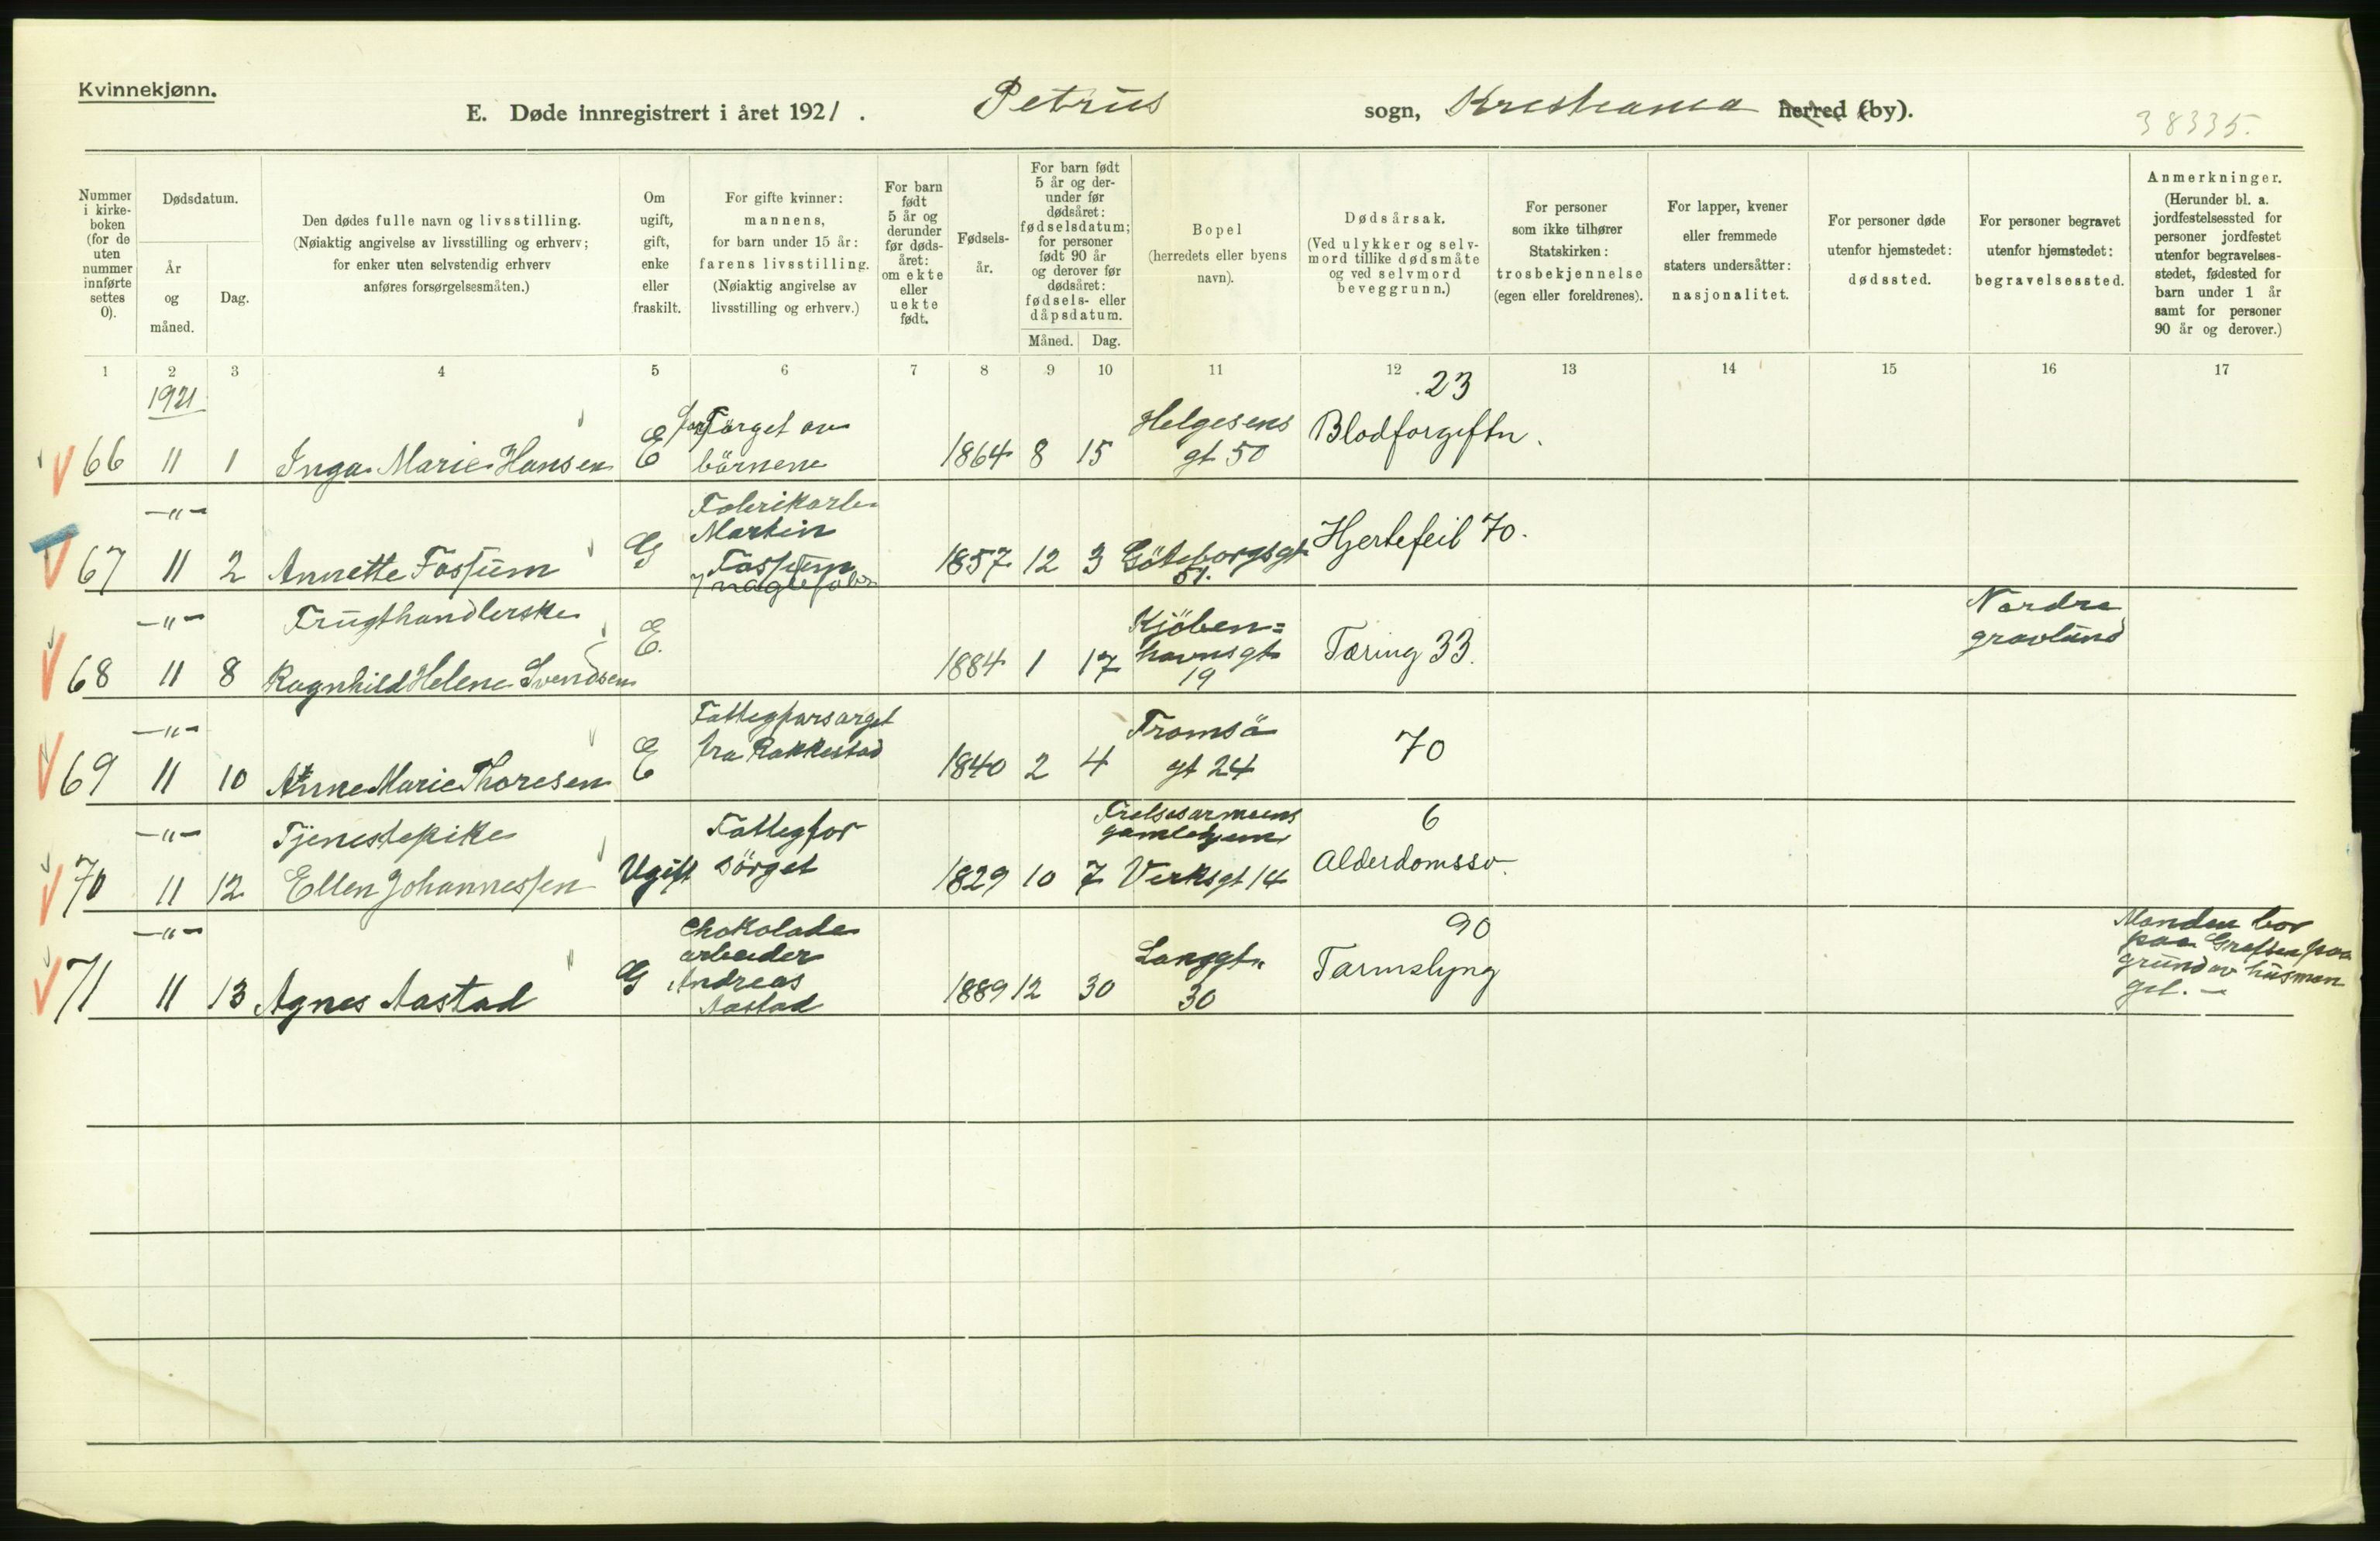 Kvinnekjønn.
E. Døde innregistrert i året 1921. Petrus sogn, Kristiania herred (by).
38335.
Nummer i kirkeboken (for de uten nummer innførte settes 0).
Dødsdatum.
År og måned.
Dag.
Den dødes fulle navn og livsstilling.
(Nøiaktig angivelse av livsstilling og erhverv;
for enker uten selvstendig erhverv
anføres forsørgelsesmåten.)
Om ugift, gift, enke eller fraskilt.
For gifte kvinner:
mannens,
for barn under 15 år:
farens livsstilling.
(Nøiaktig angivelse av
livsstilling og erhverv.)
For barn født 5 år og derunder før dødsåret: om ekte eller uekte født.
Fødselsår.
For barn født 5 år og derunder før dødsåret: fødselsdatum; for personer født 90 år og derover før dødsåret: fødsels- eller dåpsdatum.
Måned. Dag.
Bopel
(herredets eller byens
navn).
Dødsårsak.
(Ved ulykker og selv-
mord tillike dødsmåte
og ved selvmord
beveggrunn.)
For personer
som ikke tilhører
Statskirken:
trosbekjennelse
(egen eller foreldrenes).
For lapper, kvener
eller fremmede
staters undersåtter:
nasjonalitet.
For personer døde
utenfor hjemstedet:
dødssted.
For personer begravet
utenfor hjemstedet:
begravelsessted.
Anmerkninger.
(Herunder bl. a.
jordfestelsessted for
personer jordfestet
utenfor begravelses-
stedet, fødested for
barn under 1 år
samt for personer
90 år og derover.)
1 2 3 4 5 6 7 8 9 10 11 12 13 14 15 16 17
1921
66 11 1 Inga Marie Hansen E forsørget av børnene 1864 8 15 Helgesens gt 50 23 Blodforgiftn.
-"-
67 11 2 Annette Fossum G Fabrikarb. Martin Fossum 1857 12 3 Göteborgsgt 51. Hjertefeil 70.
-"- Frugthandlerske
68 11 8 Ragnhild Helene Svendsen E. 1884 1 17 Kjöben= havnsgt 19 Tæring 33. Nordre gravlund
-"-
69 11 10 Anne Marie Thoresen E Fattigforsørget fra Rakkestad 1840 2 4 Tromsö gt 24 70
-"- Tjenestepike
70 11 12 Ellen Johannessen Ugift Fattigfor sörget 1829 10 7 Frelsesarmeens gamlehjem Verksgt 14 6 Alderdomssv.
-"-
71 11 13 Agnes Aastad G Chokolade arbeider Andreas Aastad 1889 12 30 Langgt. 30 90 Tarmslyng Manden bor paa Grefsen paa grund av husman gel. -